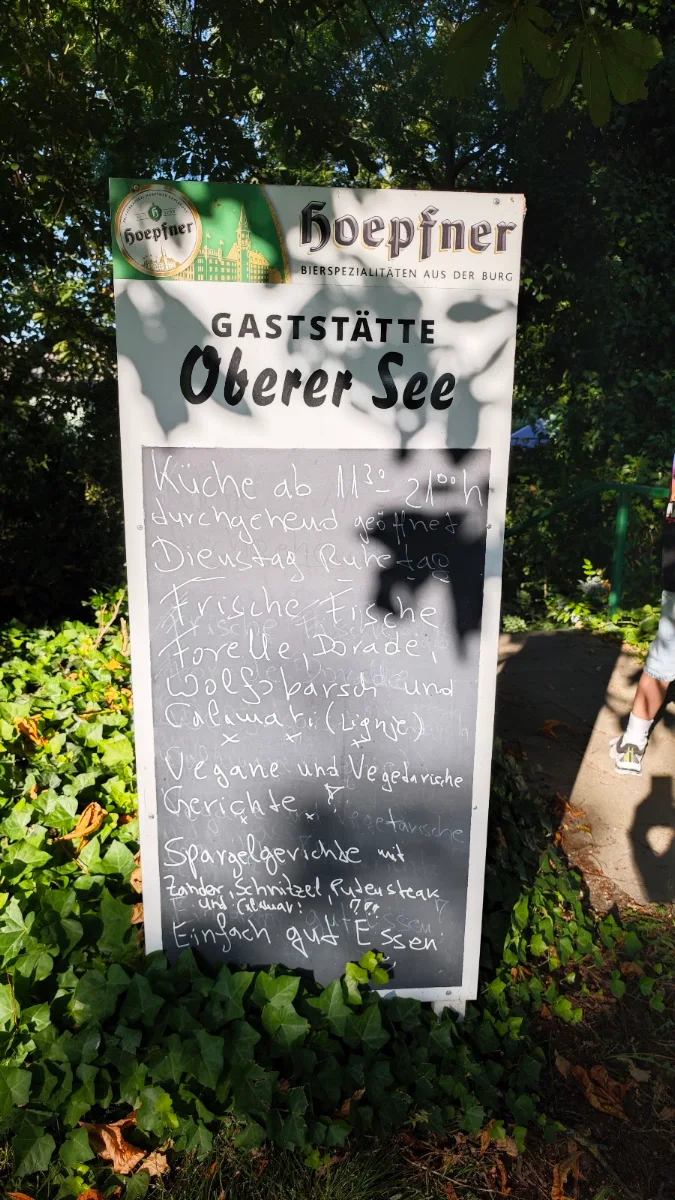 Hoepfner
Hoepfner
BIERSPEZIALITÄTEN AUS DER BURG
GASTSTÄTTE
Oberer See
Küche ab 11³⁰- 21⁰⁰h
durchgehend geöffnet
Dienstag Ruhetag
Frische Fische
Forelle, Dorade,
Wolfsbarsch und
Calamari (Lignje)
Vegane und Vegetarische
Gerichte
Spargelgerichte mit
Zander, Schnitzel, Putensteak
und Calamari
Einfach gut Essen